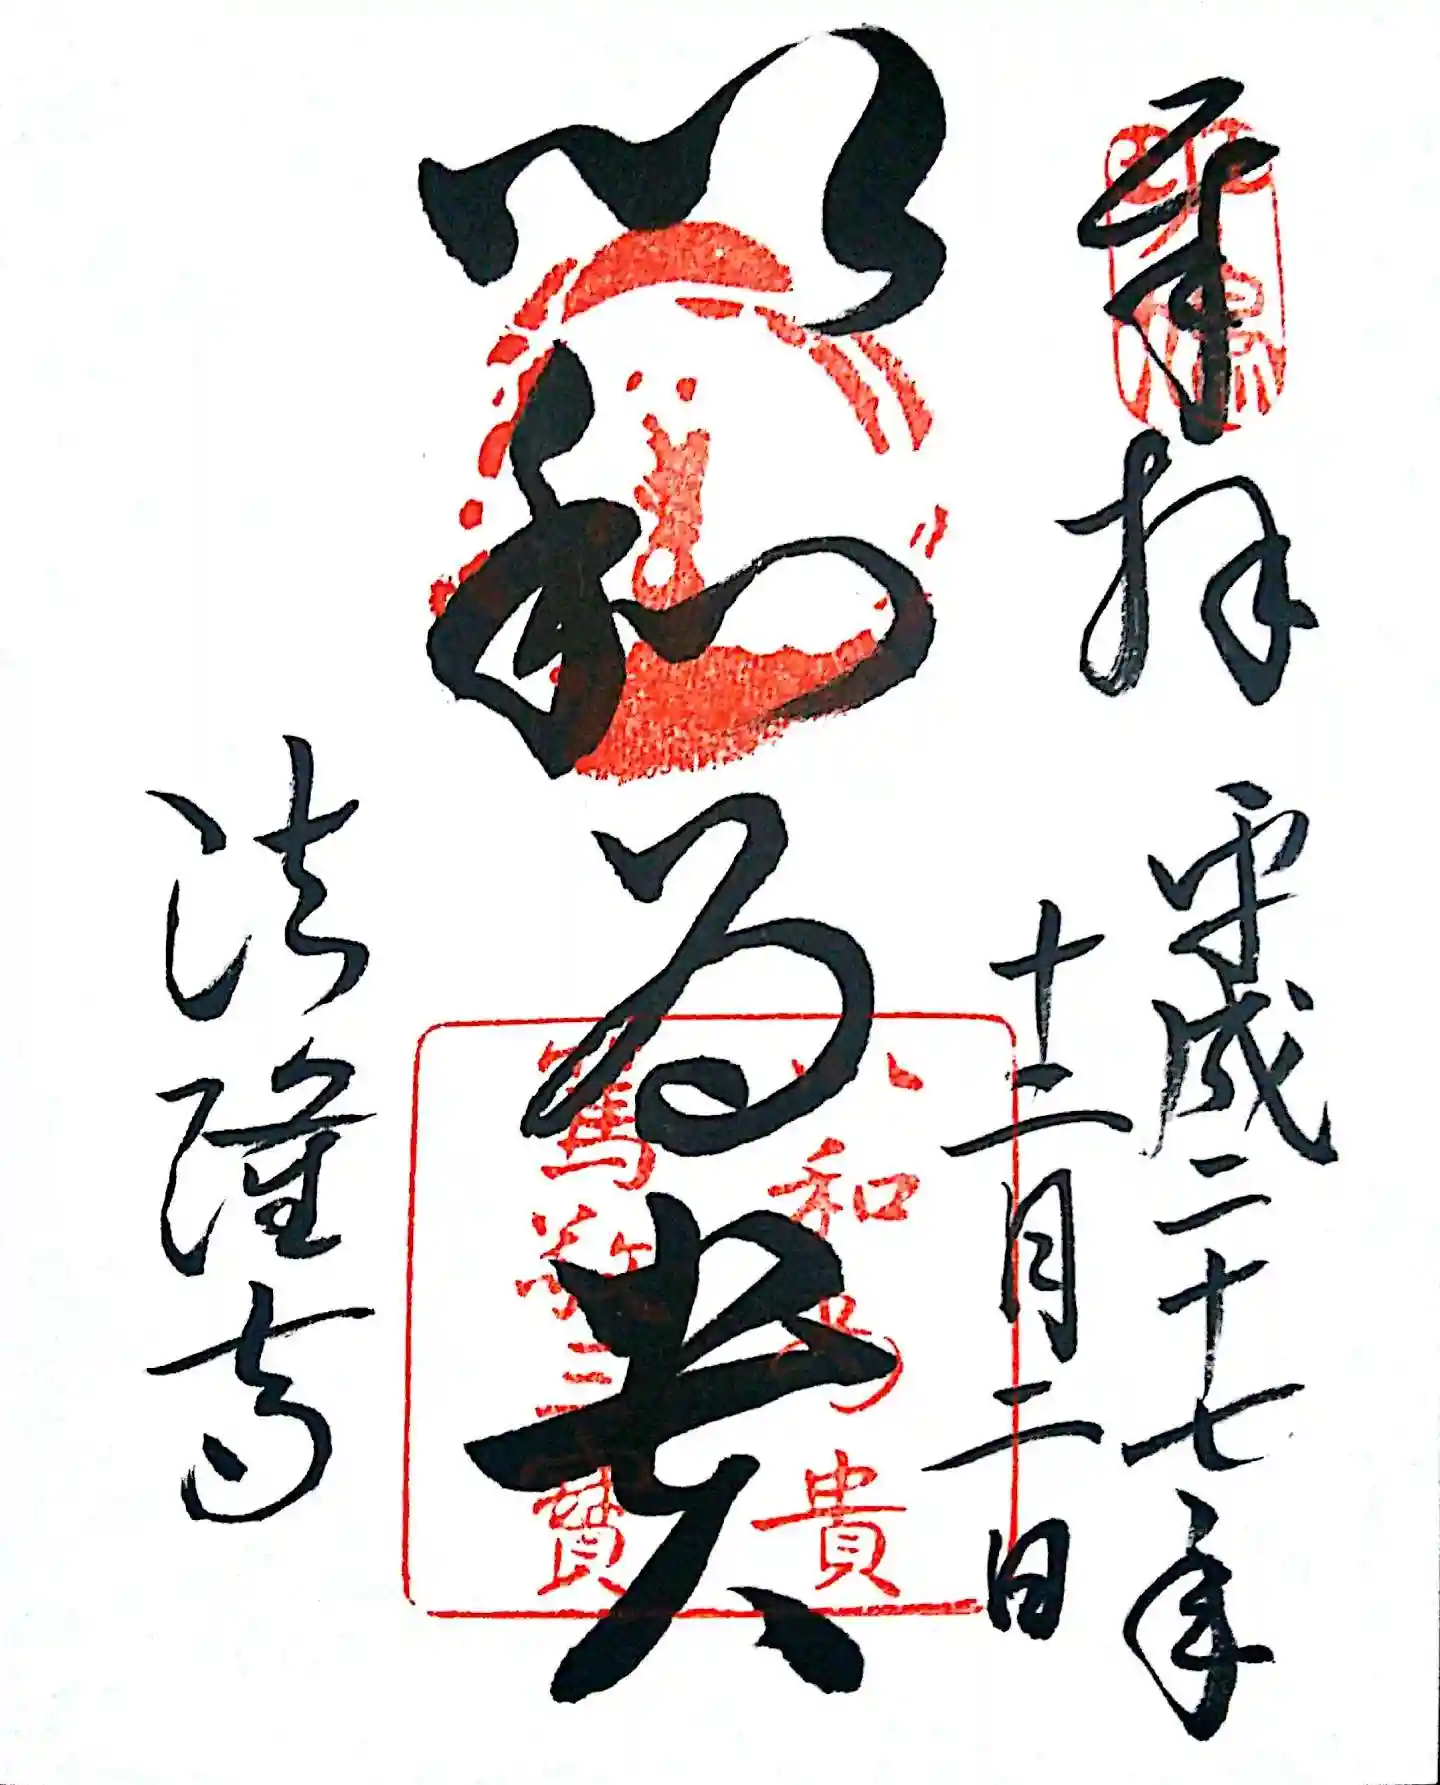 奉拝
平成二十七年
十二月二日
以和為貴
以和為貴
篤敬三寳
法隆寺